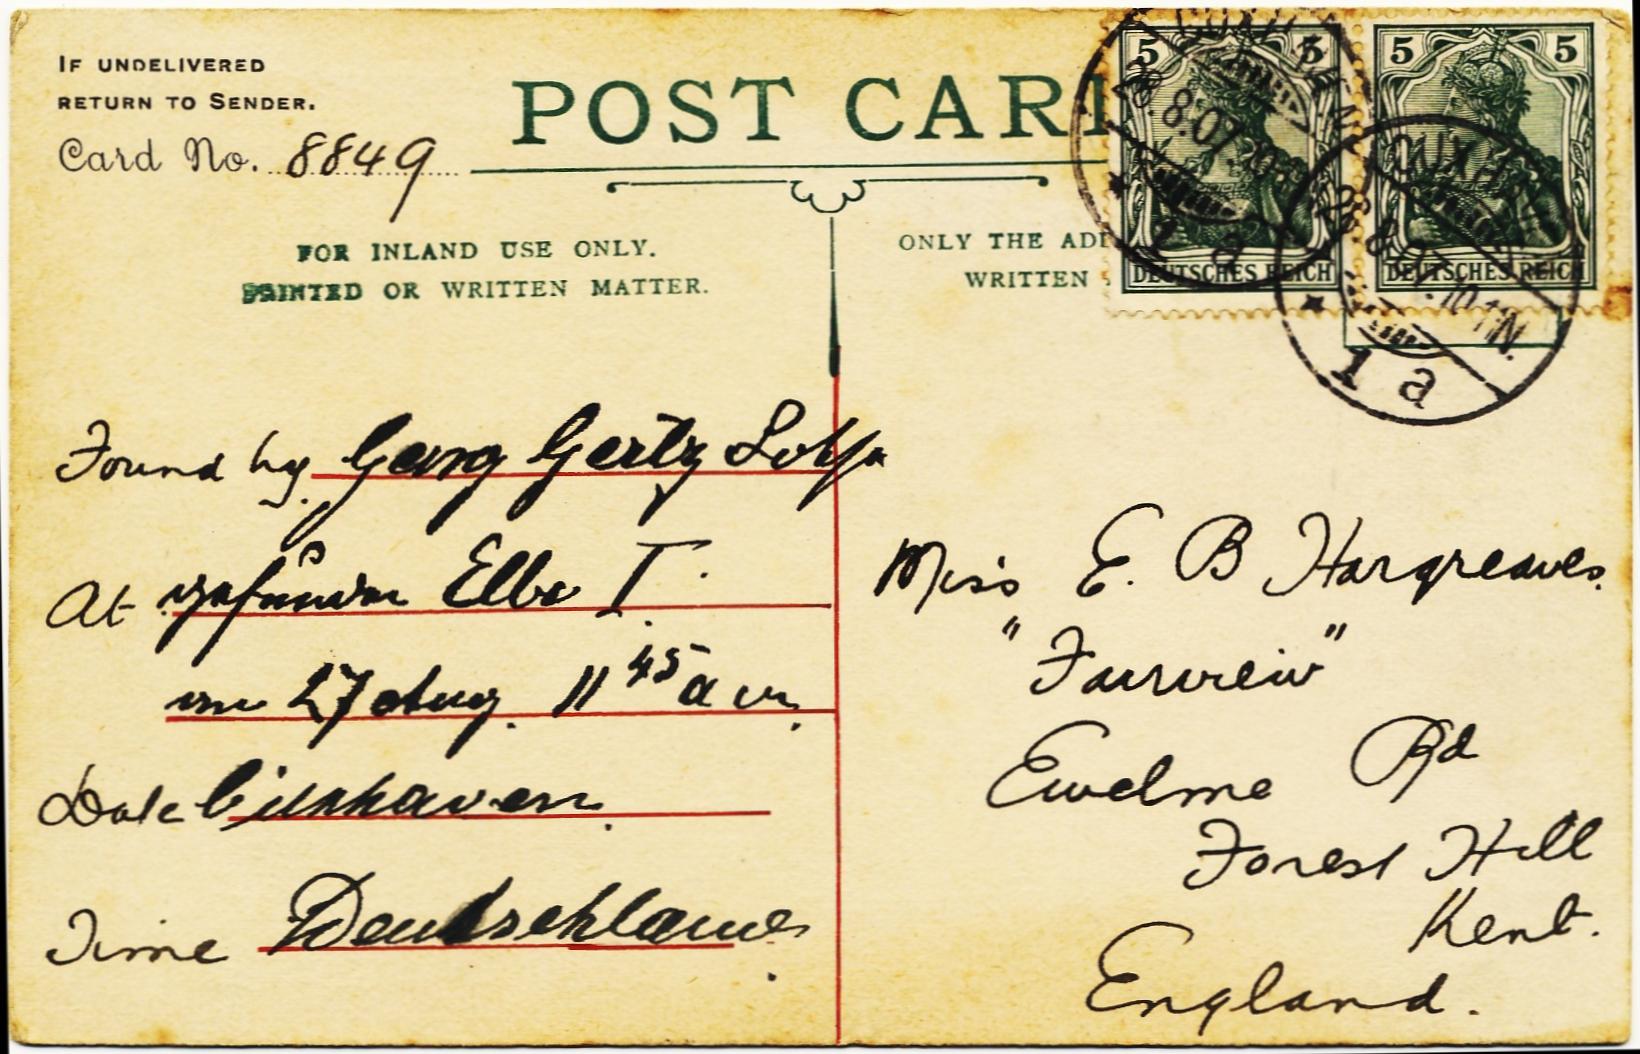 IF UNDELIVERED
RETURN TO SENDER.
Card No. 8849
POST CARD
FOR INLAND USE ONLY.
PRINTED OR WRITTEN MATTER.
ONLY THE
WRITTEN
5 5
DEUTSCHES REICH
5 5
DEUTSCHES REICH
CUXHAVEN
28.8.07.10-11N.
* 1 a
CUXHAVEN
28.8.07.10-11N.
* 1 a
Found by Georg Gertz
At gefunden Elbe I.
am 27 Aug. 11 45 a m.
Date Cuxhaven.
Time Deutschland.
Miss E. B Hargreaves.
"Fairview"
Ewelme Rd
Forest Hill
Kent.
England.